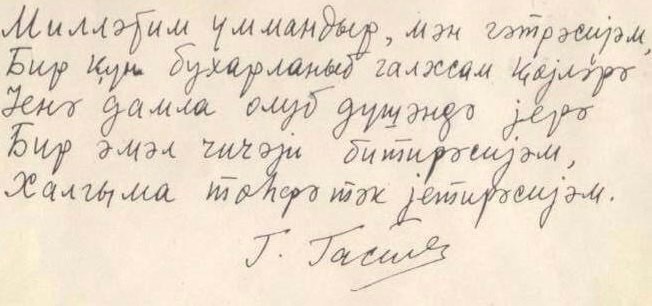 Милләтим уммандыр, мән гәтрәсијәм,
Бир ҝүн бухарланыб галхсам ҝөјләрә
Јенә дамла олуб дүшәндә јерә
Бир әмәл чичәји битирәсијәм,
Халгыма төһфә тәк јетирәсијәм.
Г. Гасım